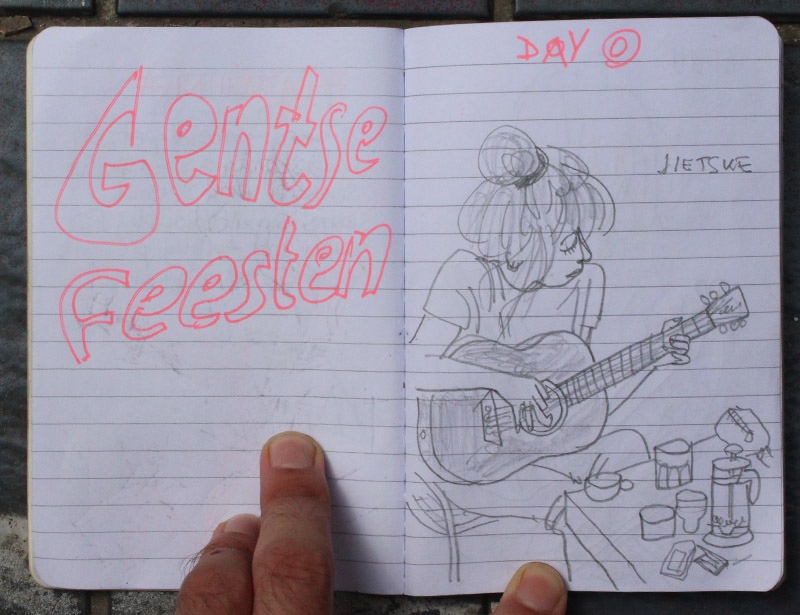 Gentse
Feesten
DAY 0
JIETSKE